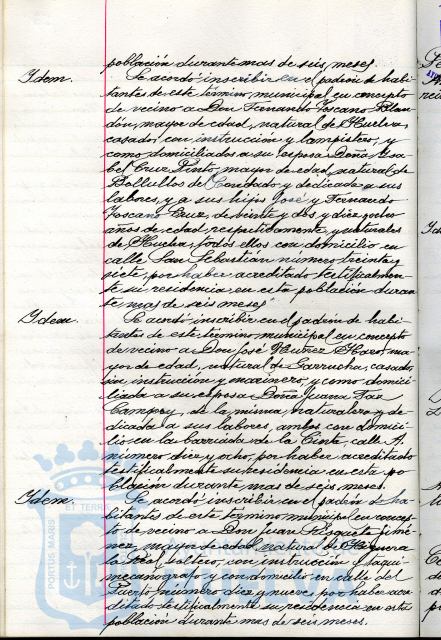 población durante mas de seis meses.
Idem. Se acordó inscribir en el padrón de habi-
tantes de este término municipal en concepto
de vecino a Don Fernando Toscano Blan-
dón, mayor de edad, natural de Huelva,
casado, con instrucción y lampistero, y
como domiciliados a su esposa Doña Isa-
bel Cruz Pinto, mayor de edad, natural de
Bollullos del Condado y dedicada a sus
labores, y a sus hijos José y Fernando
Toscano Cruz, de veinte y dos y diez y ocho
años de edad, respectivamente, y naturales
de Huelva, todos ellos con domicilio en
calle San Sebastián número treinta y
siete, por haber acreditado testificalmen-
te su residencia en esta población duran-
te mas de seis meses.
Idem. Se acordó inscribir en el padrón de habi-
tantes de este término municipal en concepto
de vecino a Don José Núñez Haro, ma-
yor de edad, natural de Garrucha, casado,
sin instrucción y marinero, y como domici-
liada a su esposa Doña Juana
de la misma naturaleza y de-
dicada a sus labores, ambos con domici-
lio en la barriada de la Cinta, calle A.
número diez y ocho, por haber acreditado
testificalmente su residencia en esta po-
blación durante mas de seis meses.
Idem. Se acordó inscribir en el padrón de ha-
bitantes de este término municipal en concep-
to de vecino a Don Juan Jimé-
nez, mayor de edad, natural de Higuera
la Real, soltero, con instrucción y taqui-
mecanógrafo y con domicilio en calle del
Puerto número diez y nueve, por haber acre-
ditado testificalmente su residencia en esta
población durante mas de seis meses.
PORTUS MARIS ET TERRAE